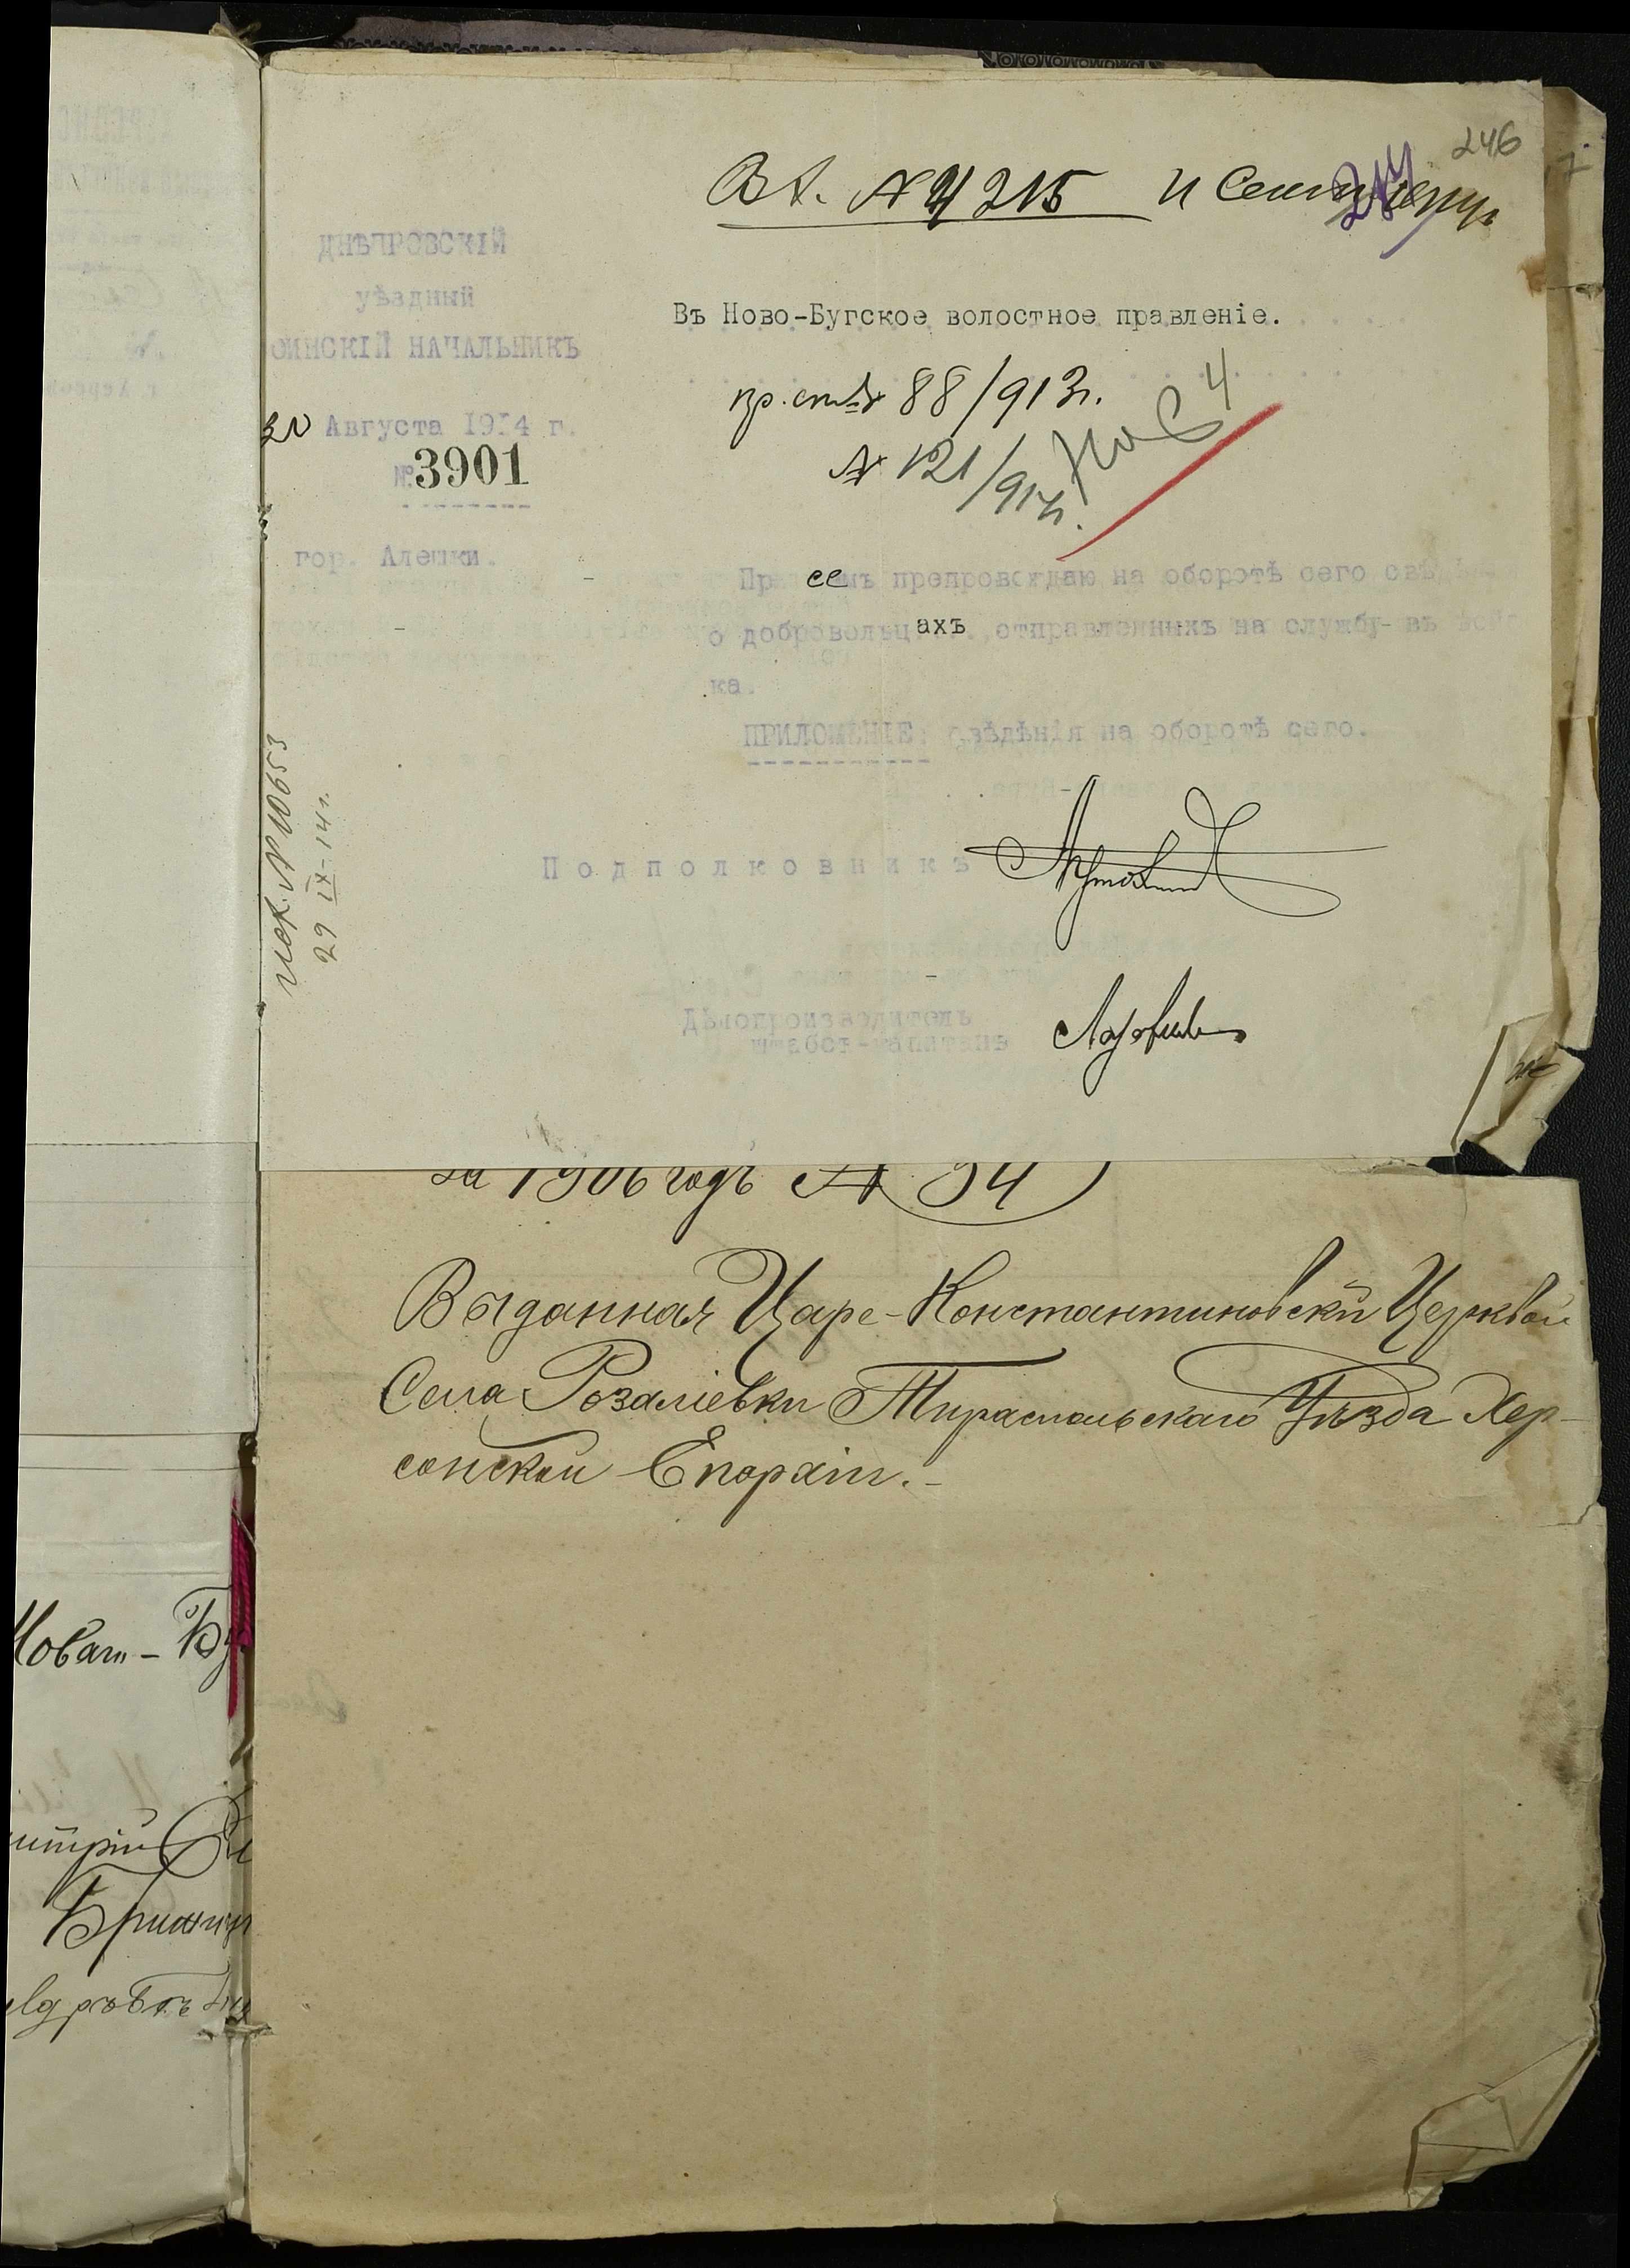 246
Вх. № 4215
ДНѢПРОВСКІЙ
уѣздный
ОИНСКІЙ НАЧАЛЬНИКЪ
Августа 1914 г.
№ 3901
гор. Алешки.
Въ Ново-Бугское волостное правленіе.
88/913г.
№ 121/914г.
При семъ препровождаю на оборотѣ сего свѣдѣ-
о добровольцахъ, отправленныхъ на службу въ войс
ка.
ПРИЛОЖЕНІЕ: свѣдѣнія на оборотѣ сего.
Подполковникъ
Дѣлопроизводитель
штабсъ-капитанъ
исх. № 10653
29 IX - 14 г.
за 1906 годъ № 94)
Выданная Царе-Константиновской Церквой
Села Розаліевки Тираспольскаго Уѣзда Хер-
сонской Епархіи.-